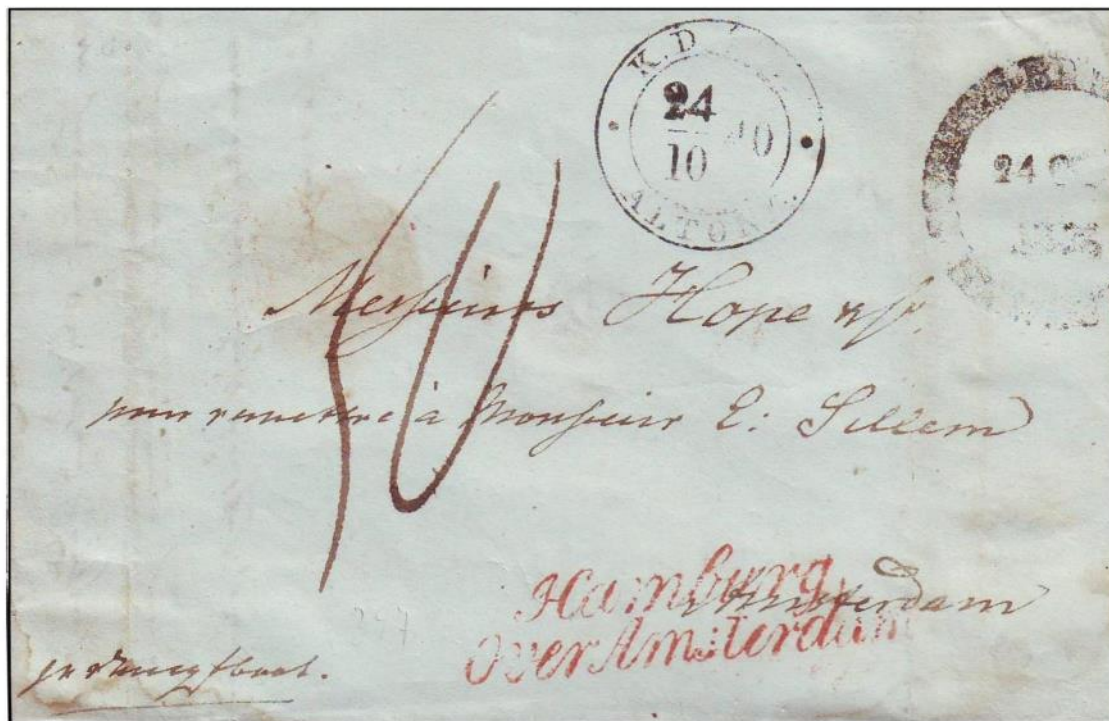 K. D.
24
10
ALTONA.
24
50
Messieurs Hope & Co.
pour remettre à Monsieur E: Sillem
Amsterdam
Hamburg
over Amsterdam
pr Dampfboot.